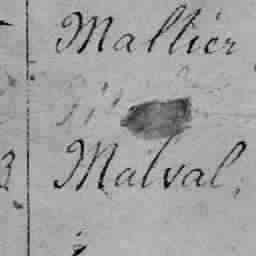 Mallier
Malval.